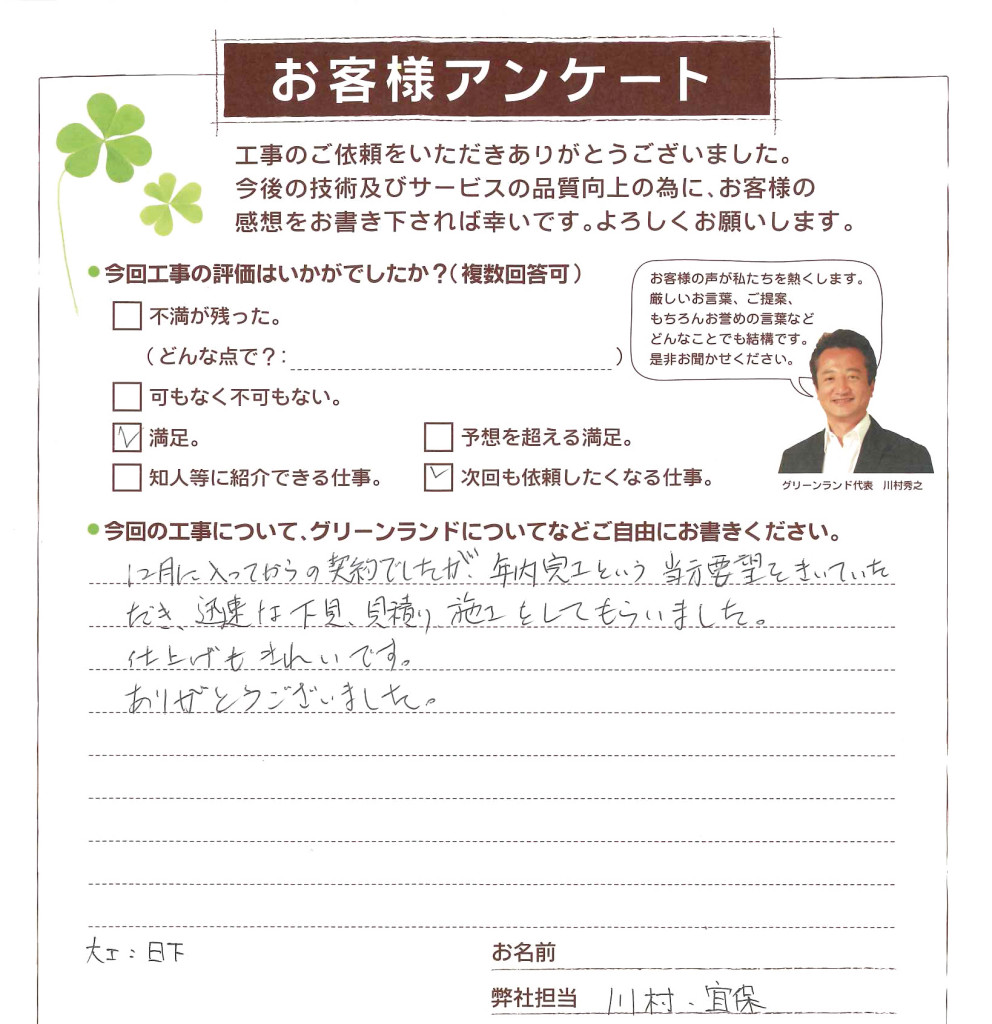 お客様アンケート
工事のご依頼をいただきありがとうございました。
今後の技術及びサービスの品質向上の為に、お客様の
感想をお書き下されば幸いです。よろしくお願いします。
●今回工事の評価はいかがでしたか？（複数回答可）
不満が残った。
（どんな点で？：　）
可もなく不可もない。
満足。
予想を超える満足。
知人等に紹介できる仕事。
次回も依頼したくなる仕事。
お客様の声が私たちを熱くします。
厳しいお言葉、ご提案、
もちろんお誉めの言葉など
どんなことでも結構です。
是非お聞かせください。
グリーンランド代表　川村秀之
●今回の工事について、グリーンランドについてなどご自由にお書きください。
12月に入ってからの契約でしたが、年内完工という当方要望をきいていた
だき、迅速な下見、見積り、施工をしてもらいました。
仕上げもきれいです。
ありがとうございました。
大工：日下
お名前
弊社担当　川村、宜保